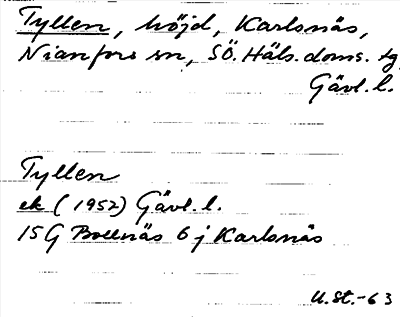 Tyllen, höjd, Karlsnäs,
Nianfors sn, SÖ. Häls. doms. tg
Gävl. l.
Tyllen
ek (1952) Gävl. l.
15G Bollnäs 6 j Karlsnäs
U. St. -63